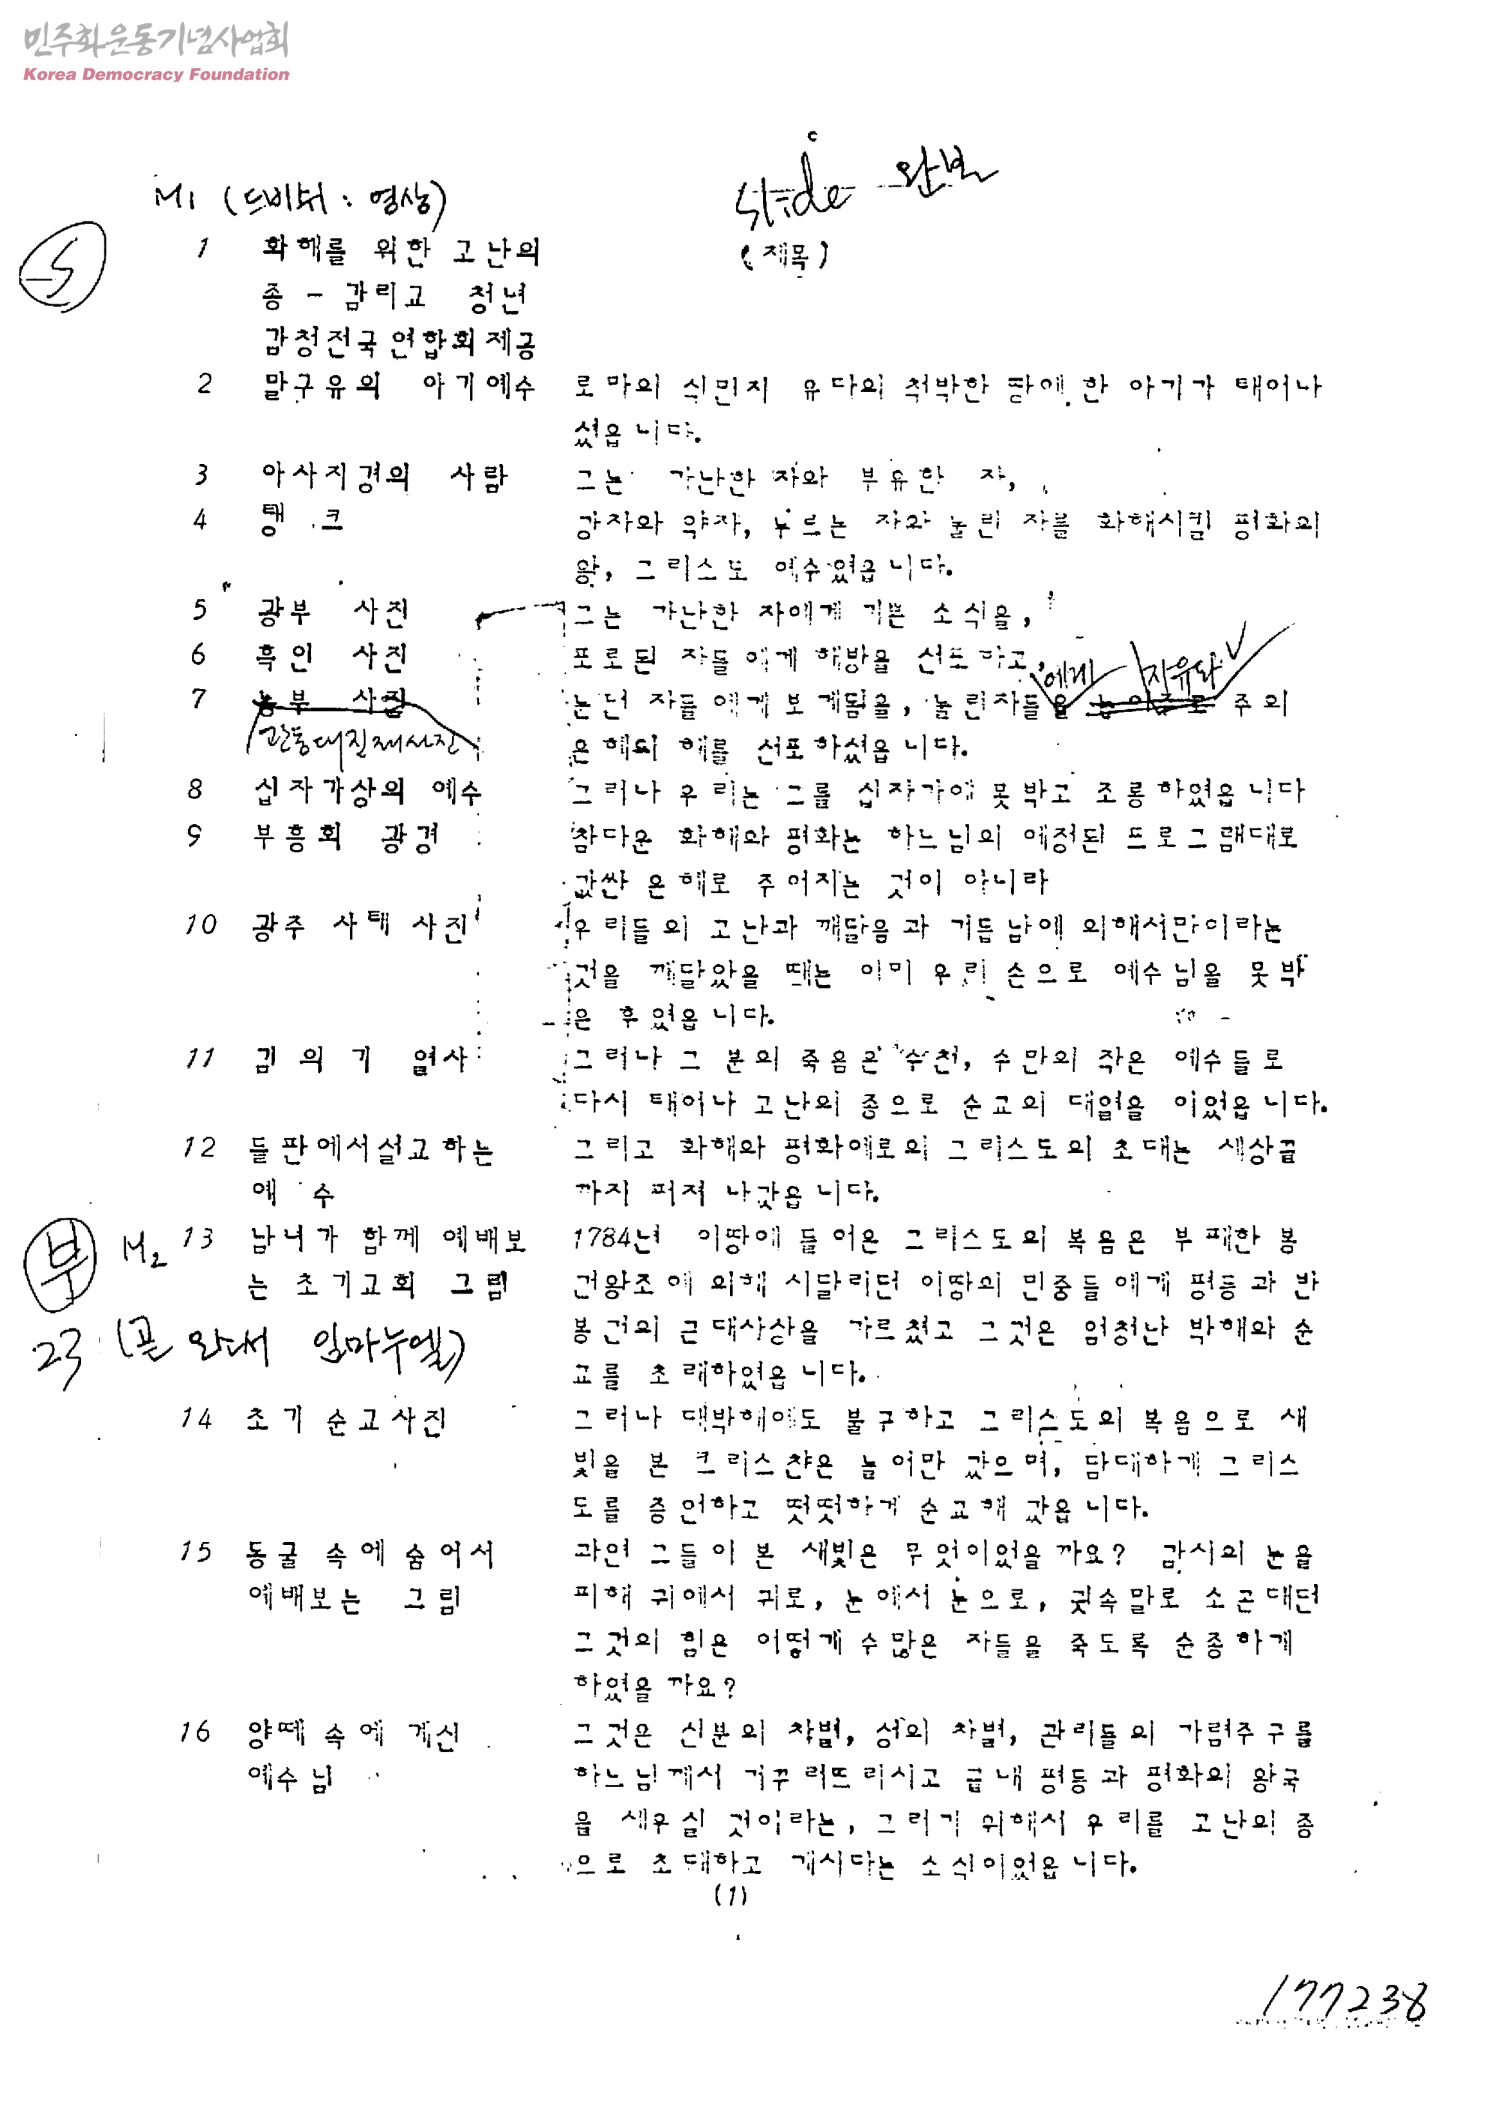 민주화운동기념사업회
Korea Democracy Foundation
slide 완본
M1 (드비쉬 : 영상)
1 화해를 위한 고난의 (제목)
종 - 감리교 청년
감청전국연합회제공
2 말구유의 아기예수 로마의 식민지 유다의 척박한 땅에 한 아기가 태어나
셨읍니다.
3 아사지경의 사람 그는 가난한 자와 부유한 자,
4 탱 크 강자와 약자, 누르는 자와 눌린 자를 화해시킬 평화의
왕, 그리스도 예수였읍니다.
5 광부 사진 그는 가난한 자에게 기쁜 소식을,
6 흑인 사진 포로된 자들에게 해방을 선포하고,
에게 자유다
7 농부 사진 눈먼 자들에게 보게됨을, 눌린자들을 놓아줌로 주의
관동대진재사진 은혜의 해를 선포하셨읍니다.
8 십자가상의 예수 그러나 우리는 그를 십자가에 못박고 조롱하였읍니다
9 부흥회 광경 참다운 화해와 평화는 하느님의 예정된 프로그램대로
값싼 은혜로 주어지는 것이 아니라
10 광주 사태 사진 우리들의 고난과 깨달음과 거듭남에 의해서만이라는
것을 깨달았을 때는 이미 우리 손으로 예수님을 못박
은 후였읍니다.
11 김 의 기 열사 그러나 그 분의 죽음은 수천, 수만의 작은 예수들로
다시 태어나 고난의 종으로 순교의 대열을 이었읍니다.
12 들판에서설교하는 그리고 화해와 평화에로의 그리스도의 초대는 세상끝
예 수 까지 퍼져 나갔읍니다.
부 M2 13 남녀가 함께 예배보 1784년 이땅에 들어온 그리스도의 복음은 부패한 봉
는 초기교회 그림 건왕조에 의해 시달리던 이땅의 민중들에게 평등과 반
23 (곧 와서 임마누엘) 봉건의 근대사상을 가르쳤고 그것은 엄청난 박해와 순
교를 초래하였읍니다.
14 초기 순교사진 그러나 대박해에도 불구하고 그리스도의 복음으로 새
빛을 본 크리스챤은 늘어만 갔으며, 담대하게 그리스
도를 증언하고 떳떳하게 순교해 갔읍니다.
15 동굴 속에 숨어서 과연 그들이 본 새빛은 무엇이었을까요? 감시의 눈을
예배보는 그림 피해 귀에서 귀로, 눈에서 눈으로, 귓속말로 소곤대던
그것의 힘은 어떻게 수많은 자들을 죽도록 순종하게
하였을까요?
16 양떼 속에 계신 그것은 신분의 차별, 성의 차별, 관리들의 가렴주구를
예수님 하느님께서 거꾸러뜨리시고 급내 평등과 평화의 왕국
을 세우실 것이라는, 그러기 위해서 우리를 고난의 종
으로 초대하고 계시다는 소식이었읍니다.
(1)
177238